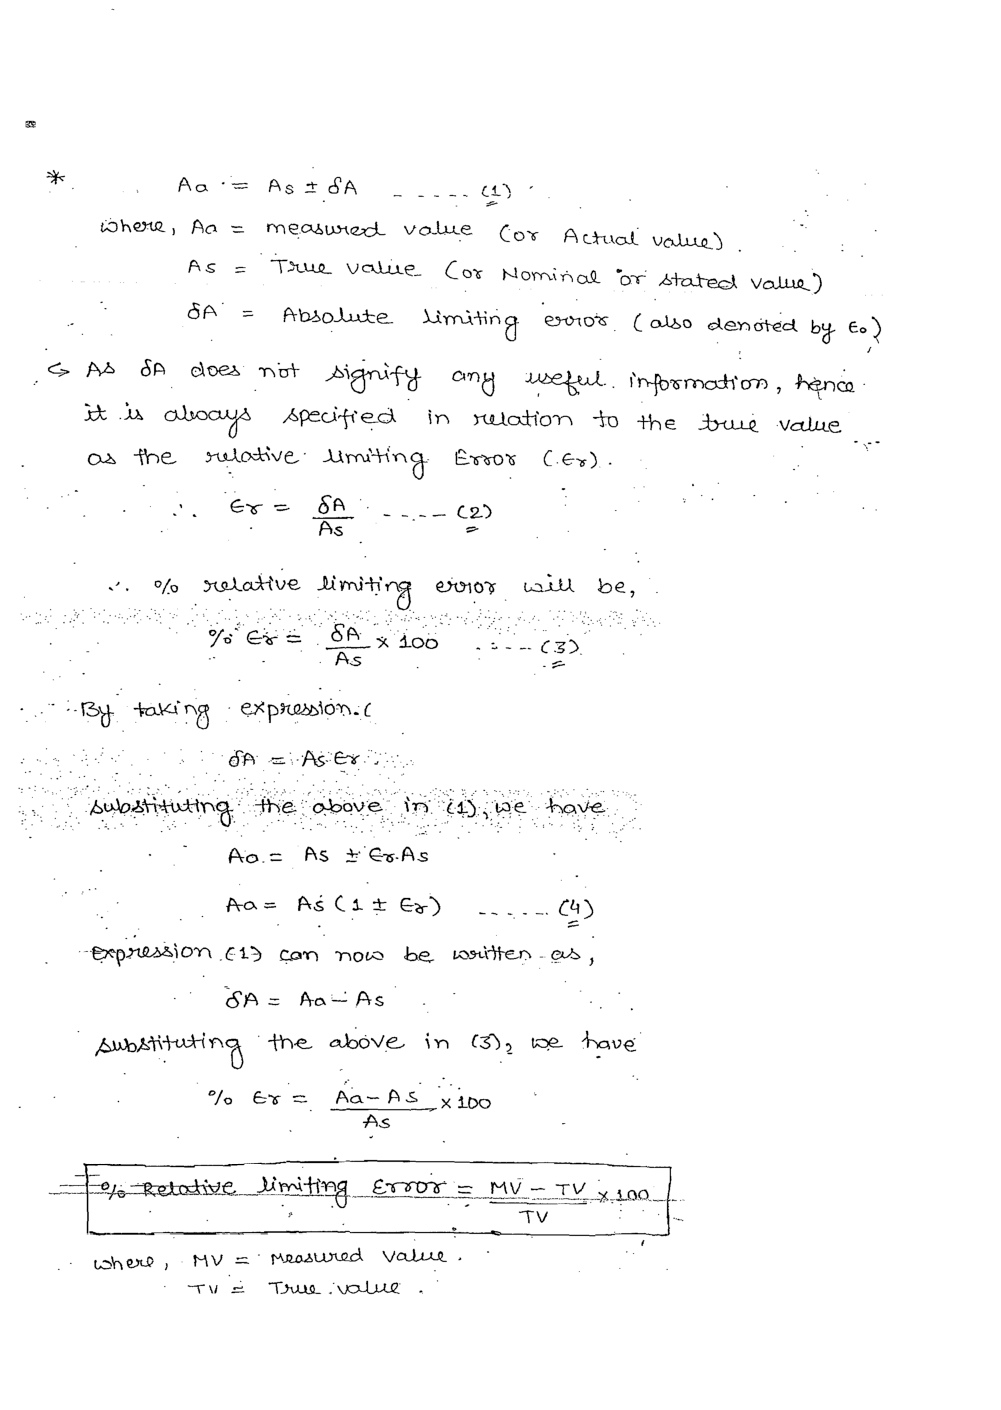 * Aa = As ± δA ------ (1)
where, Aa = measured value (or Actual value).
As = True value (or Nominal or stated value)
δA = Absolute limiting error (also denoted by ϵo)
↪ As δA does not signify any useful information, hence
it is always specified in relation to the true value
as the relative limiting Error (ϵr).
∴ ϵr = δA/As ------ (2)
∴ % relative limiting error will be,
% ϵr = δA/As × 100 ------ (3)
By taking expression (
δA = As ϵr
substituting the above in (1), we have
Aa = As ± ϵr.As
Aa = As (1 ± ϵr) ------ (4)
expression (1) can now be written as,
δA = Aa - As
substituting the above in (3), we have
% ϵr = Aa - As/As × 100
% Relative limiting Error = MV - TV/TV × 100
where, MV = Measured value.
TV = True value.